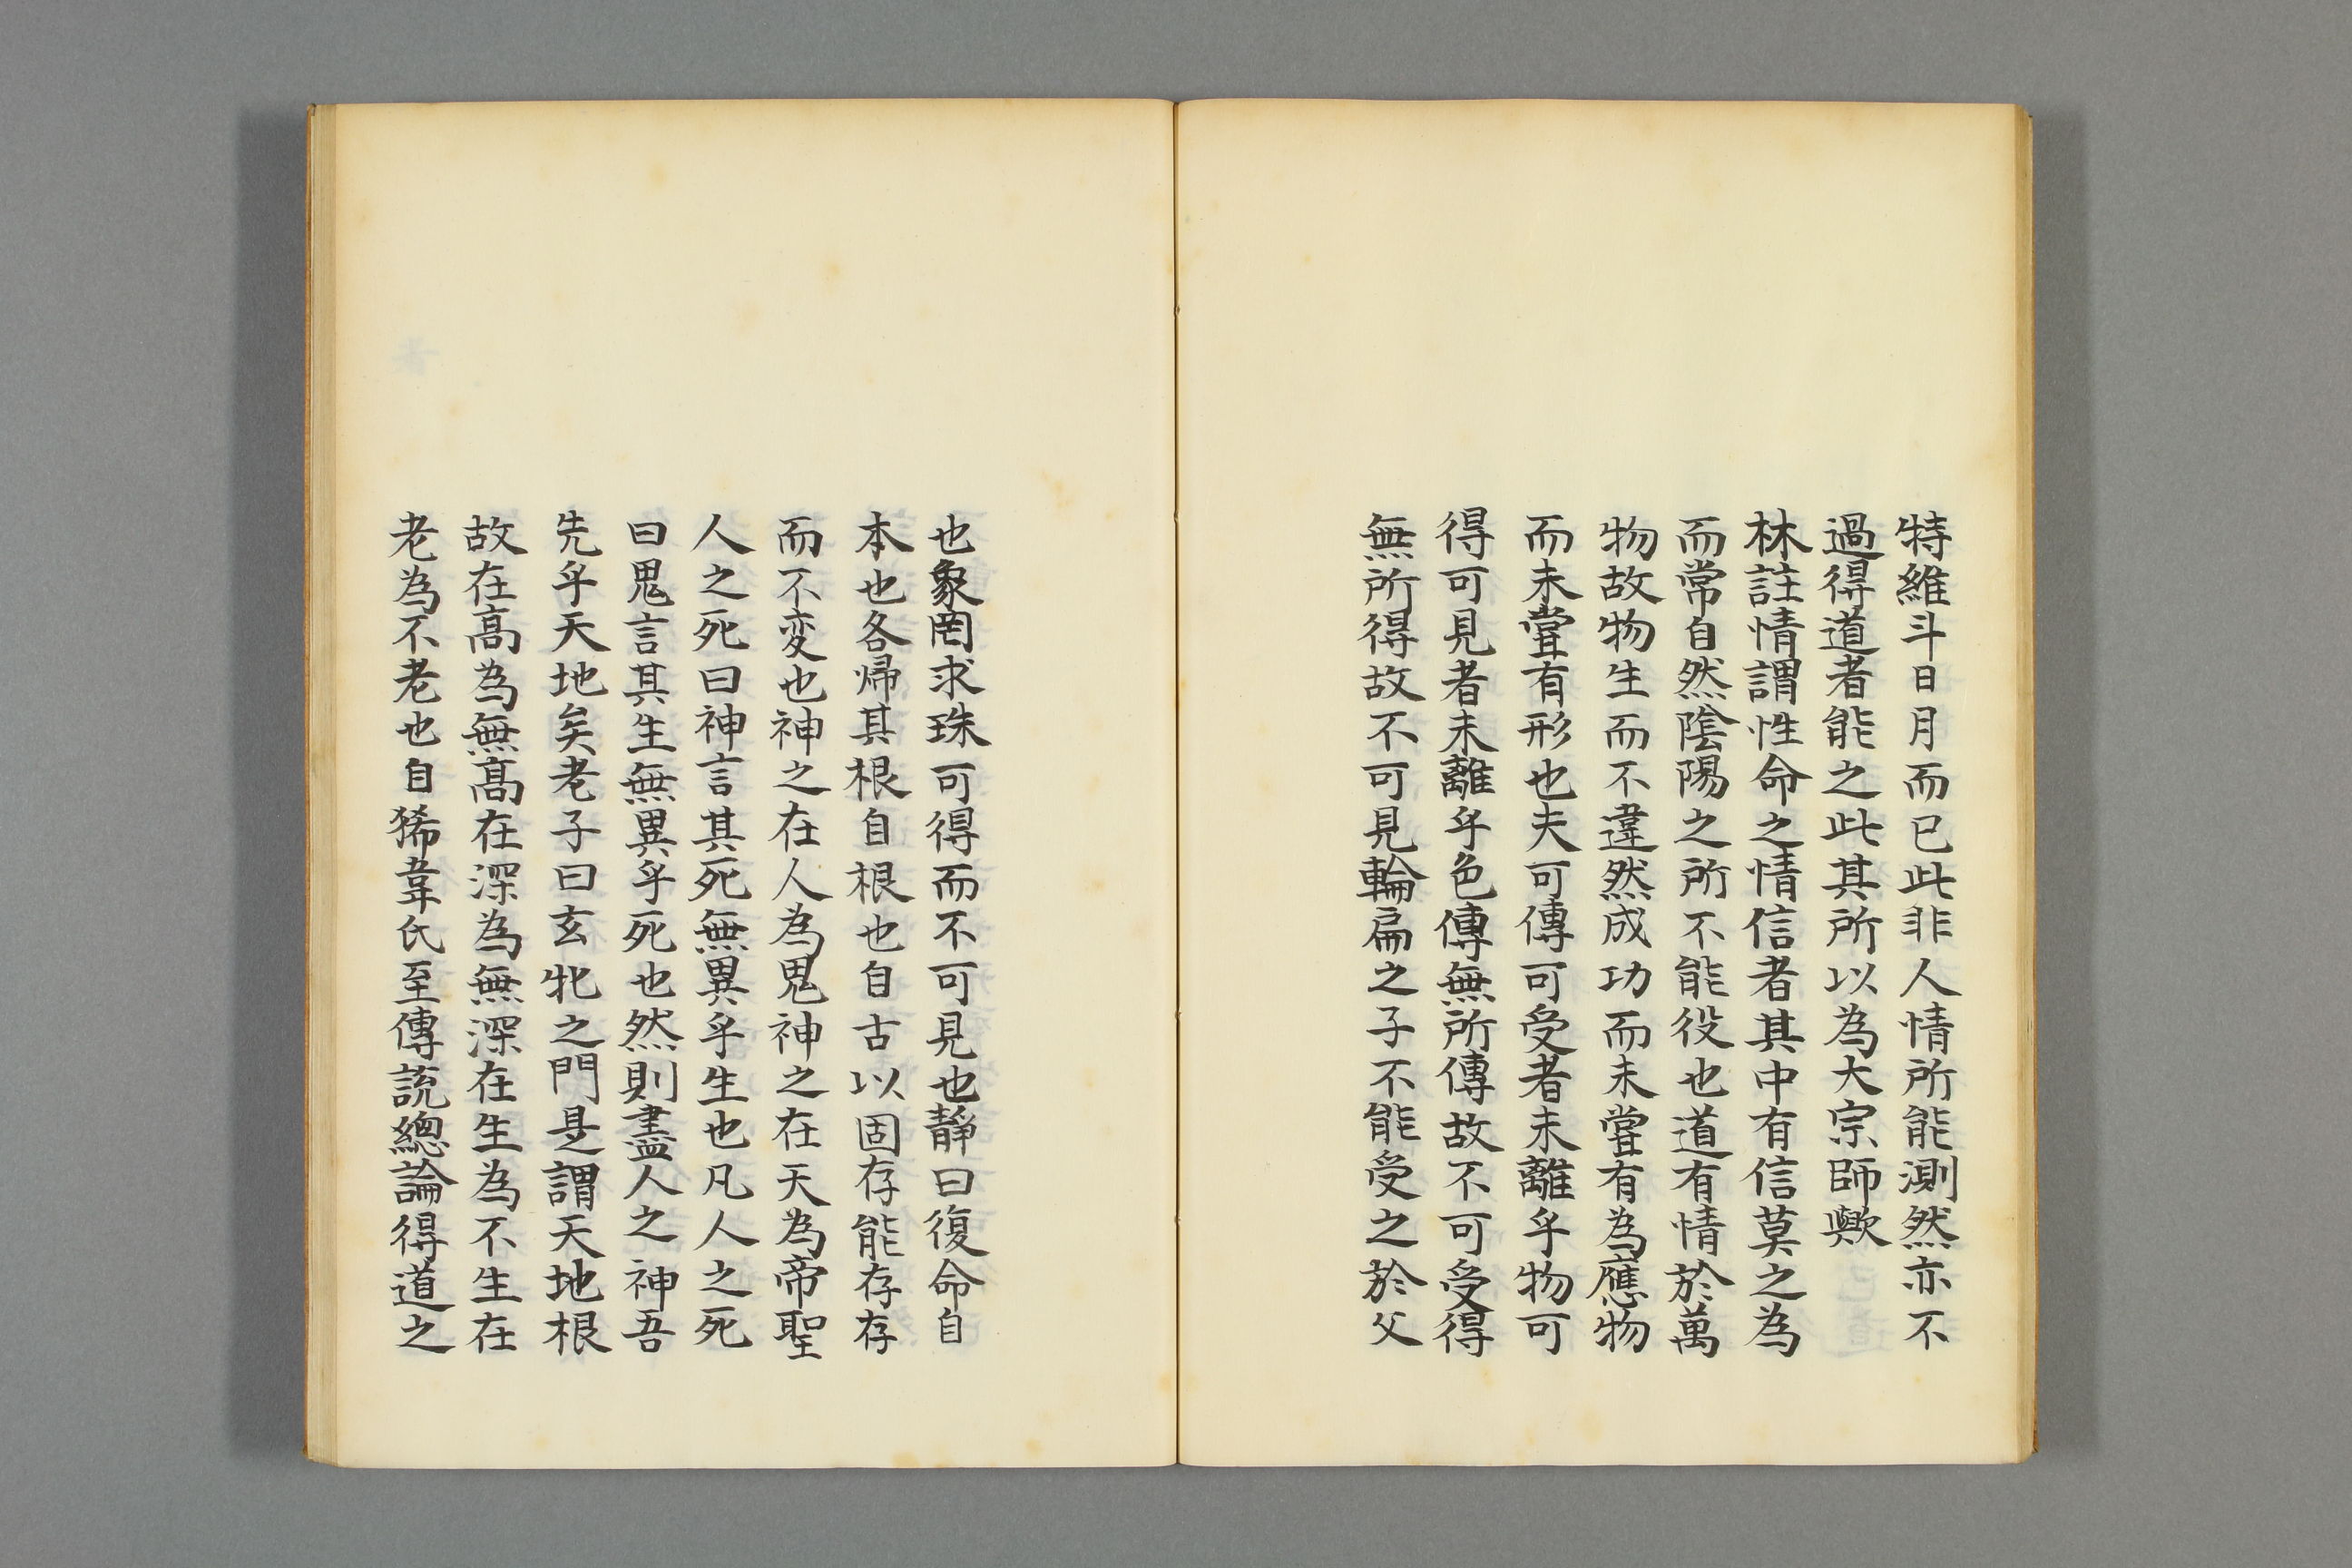 特維斗日月而已此非人情所能測然亦不
過得道者能之此其所以為大宗師歟
林註情謂性命之情信者其中有信莫之為
而常自然陰陽之所不能役也道有情於萬
物故物生而不違然成功而未甞有為應物
而未甞有形也夫可傳可受者未離乎物可
得可見者未離乎色傳無所傳故不可受得
無所得故不可見輪扁之子不能受之於父
也象罔求珠可得而不可見也靜曰復命自
本也各帰其根自根也自古以固存能存存
而不変也神之在人為鬼神之在天為帝聖
人之死曰神言其死無異乎生也凡人之死
曰鬼言其生無異乎死也然則盡人之神吾
先乎天地矣老子曰玄牝之門是謂天地根
故在高為無高在深為無深在生為不生在
老為不老也自狶韋氏至傳説總論得道之